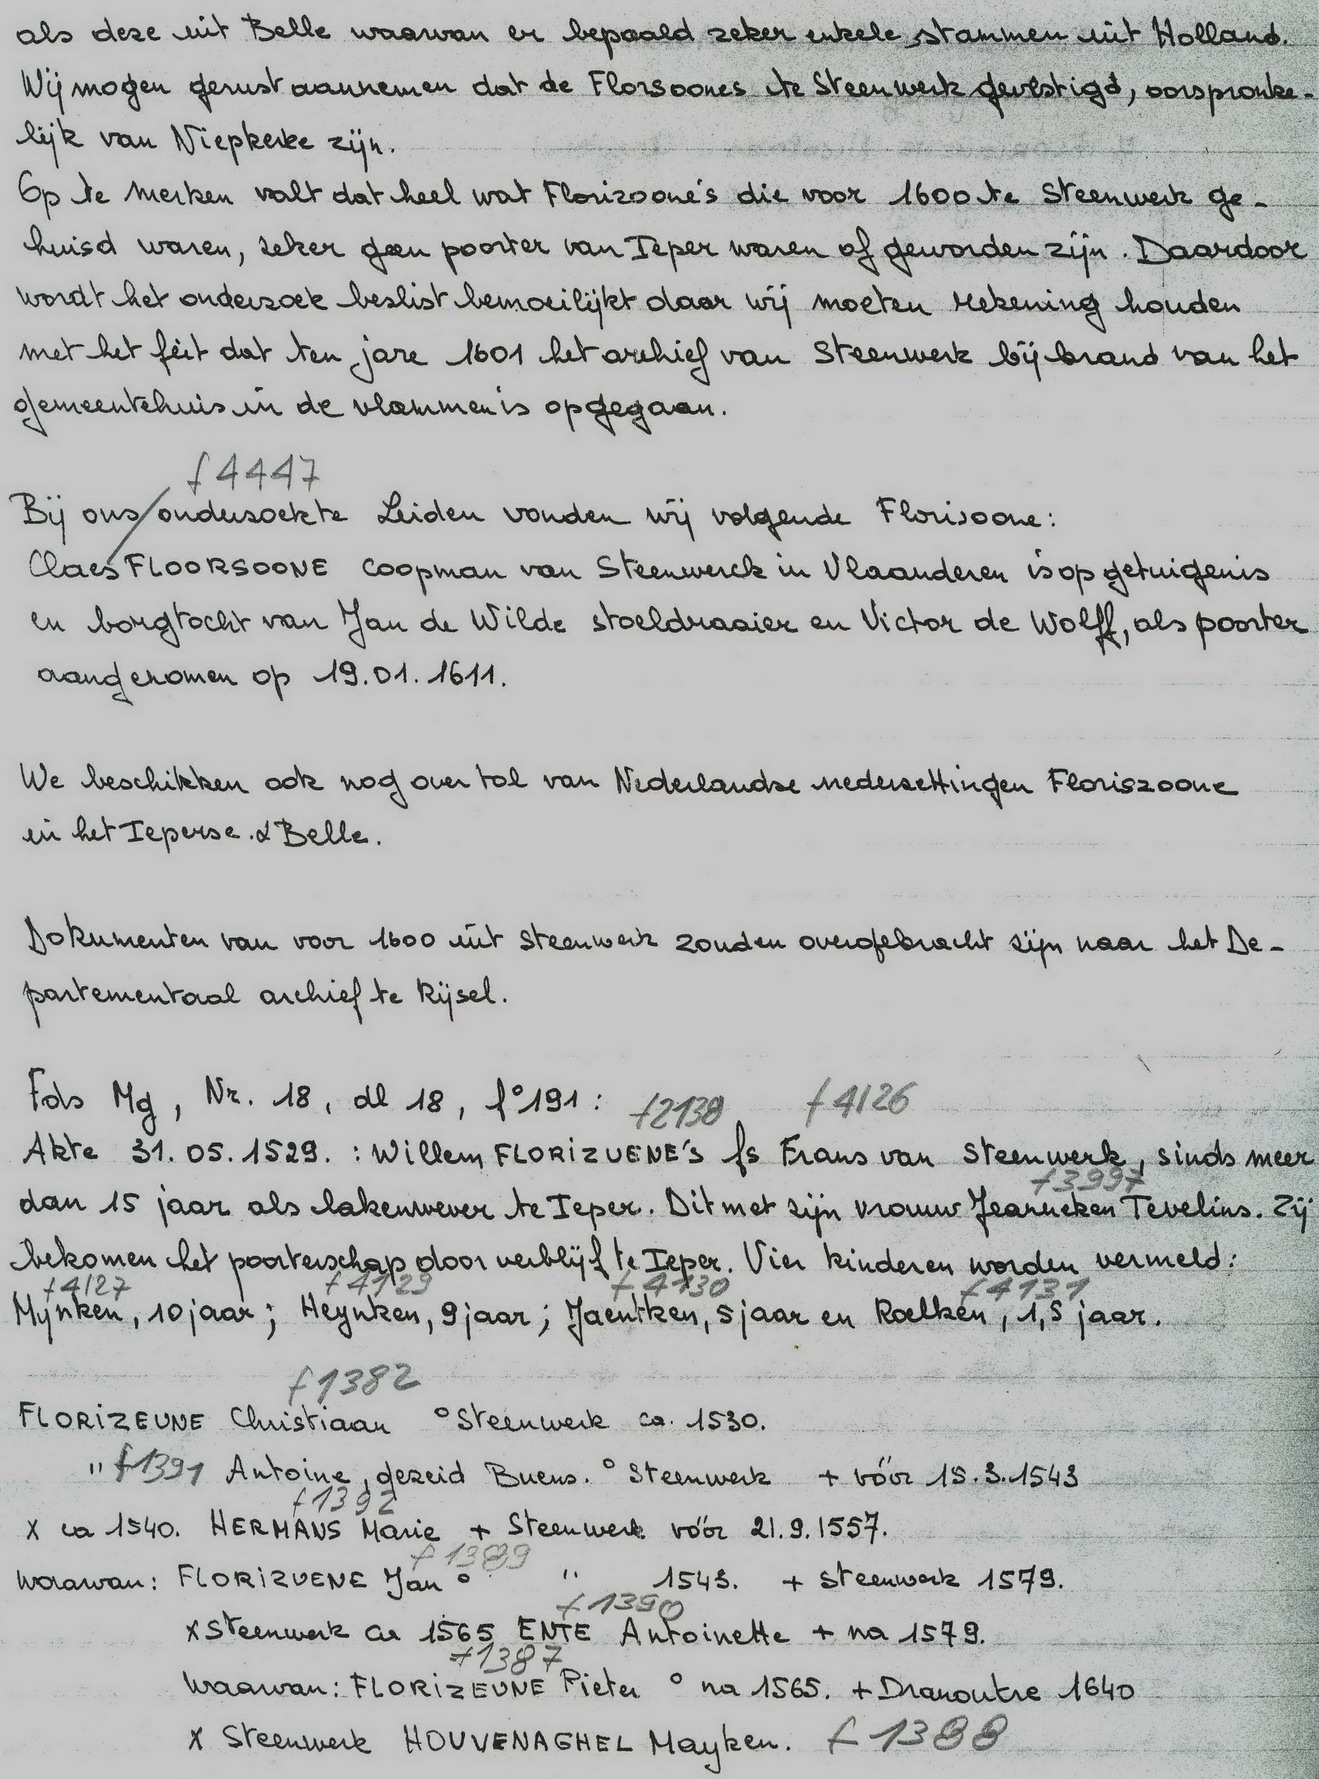 als deze uit Belle waarvan er bepaald zeker enkele stammen uit Holland.
Wij mogen gerust aannemen dat de Florsoones te Steenwerk gevestigd, oorspronke-
lijk van Niepkerke zijn.
Op te merken valt dat heel wat Florizoone's die voor 1600 te Steenwerk ge-
huisd waren, zeker geen poorter van Ieper waren of geworden zijn. Daardoor
wordt het onderzoek beslist bemoeilijkt daar wij moeten rekening houden
met het feit dat ten jare 1601 het archief van Steenwerk bij brand van het
gemeentehuis in de vlammen is opgegaan.
f4447
Bij ons/onderzoekte Leiden vonden wij volgende Florisoone:
Claes FLOORSOONE coopman van Steenwerck in Vlaanderen is op getuigenis
en borgtocht van Jan de Wilde stoeldraaier en Victor de Wolff, als poorter
aangenomen op 19.01.1611.
We beschikken ook nog over tal van Nederlandse nederzettingen Floriszoone
in het Ieperse & Belle.
Dokumenten van voor 1600 uit Steenwerk zouden overgebracht zijn naar het De-
partementaal archief te Rijsel.
Fds Mg, Nr. 18, dl 18, f°191: f2138 f4126
Akte 31.05.1529. : Willem FLORIZUENE'S fs Frans van Steenwerk, sinds meer
f3997
dan 15 jaar als lakenwever te Ieper. Dit met zijn vrouw Jeanneken Tevelins. Zij
bekomen het poorterschap door verblijf te Ieper. Vier kinderen worden vermeld:
f4127 f4129 f4130 f4131
Mynken, 10 jaar; Heynken, 9 jaar; Jaentken, 5 jaar en Roelken, 1,5 jaar.
f1382
FLORIZEUNE Christiaan ° Steenwerk ca. 1530.
" f1391 Antoine, gezeid Buens. ° Steenwerk + vóór 15.3.1543
f1392
x ca 1540. HERMANS Marie + Steenwerk vóór 21.9.1557.
f1389
waarvan: FLORIZUENE Jan ° " 1543. + Steenwerk 1579.
f1390
x Steenwerk ca 1565 ENTE Antoinette + na 1579.
f1387
Waarvan: FLORIZEUNE Pieter ° na 1565. + Dranoutre 1640
x Steenwerk HOUVENAGHEL Mayken. f1388